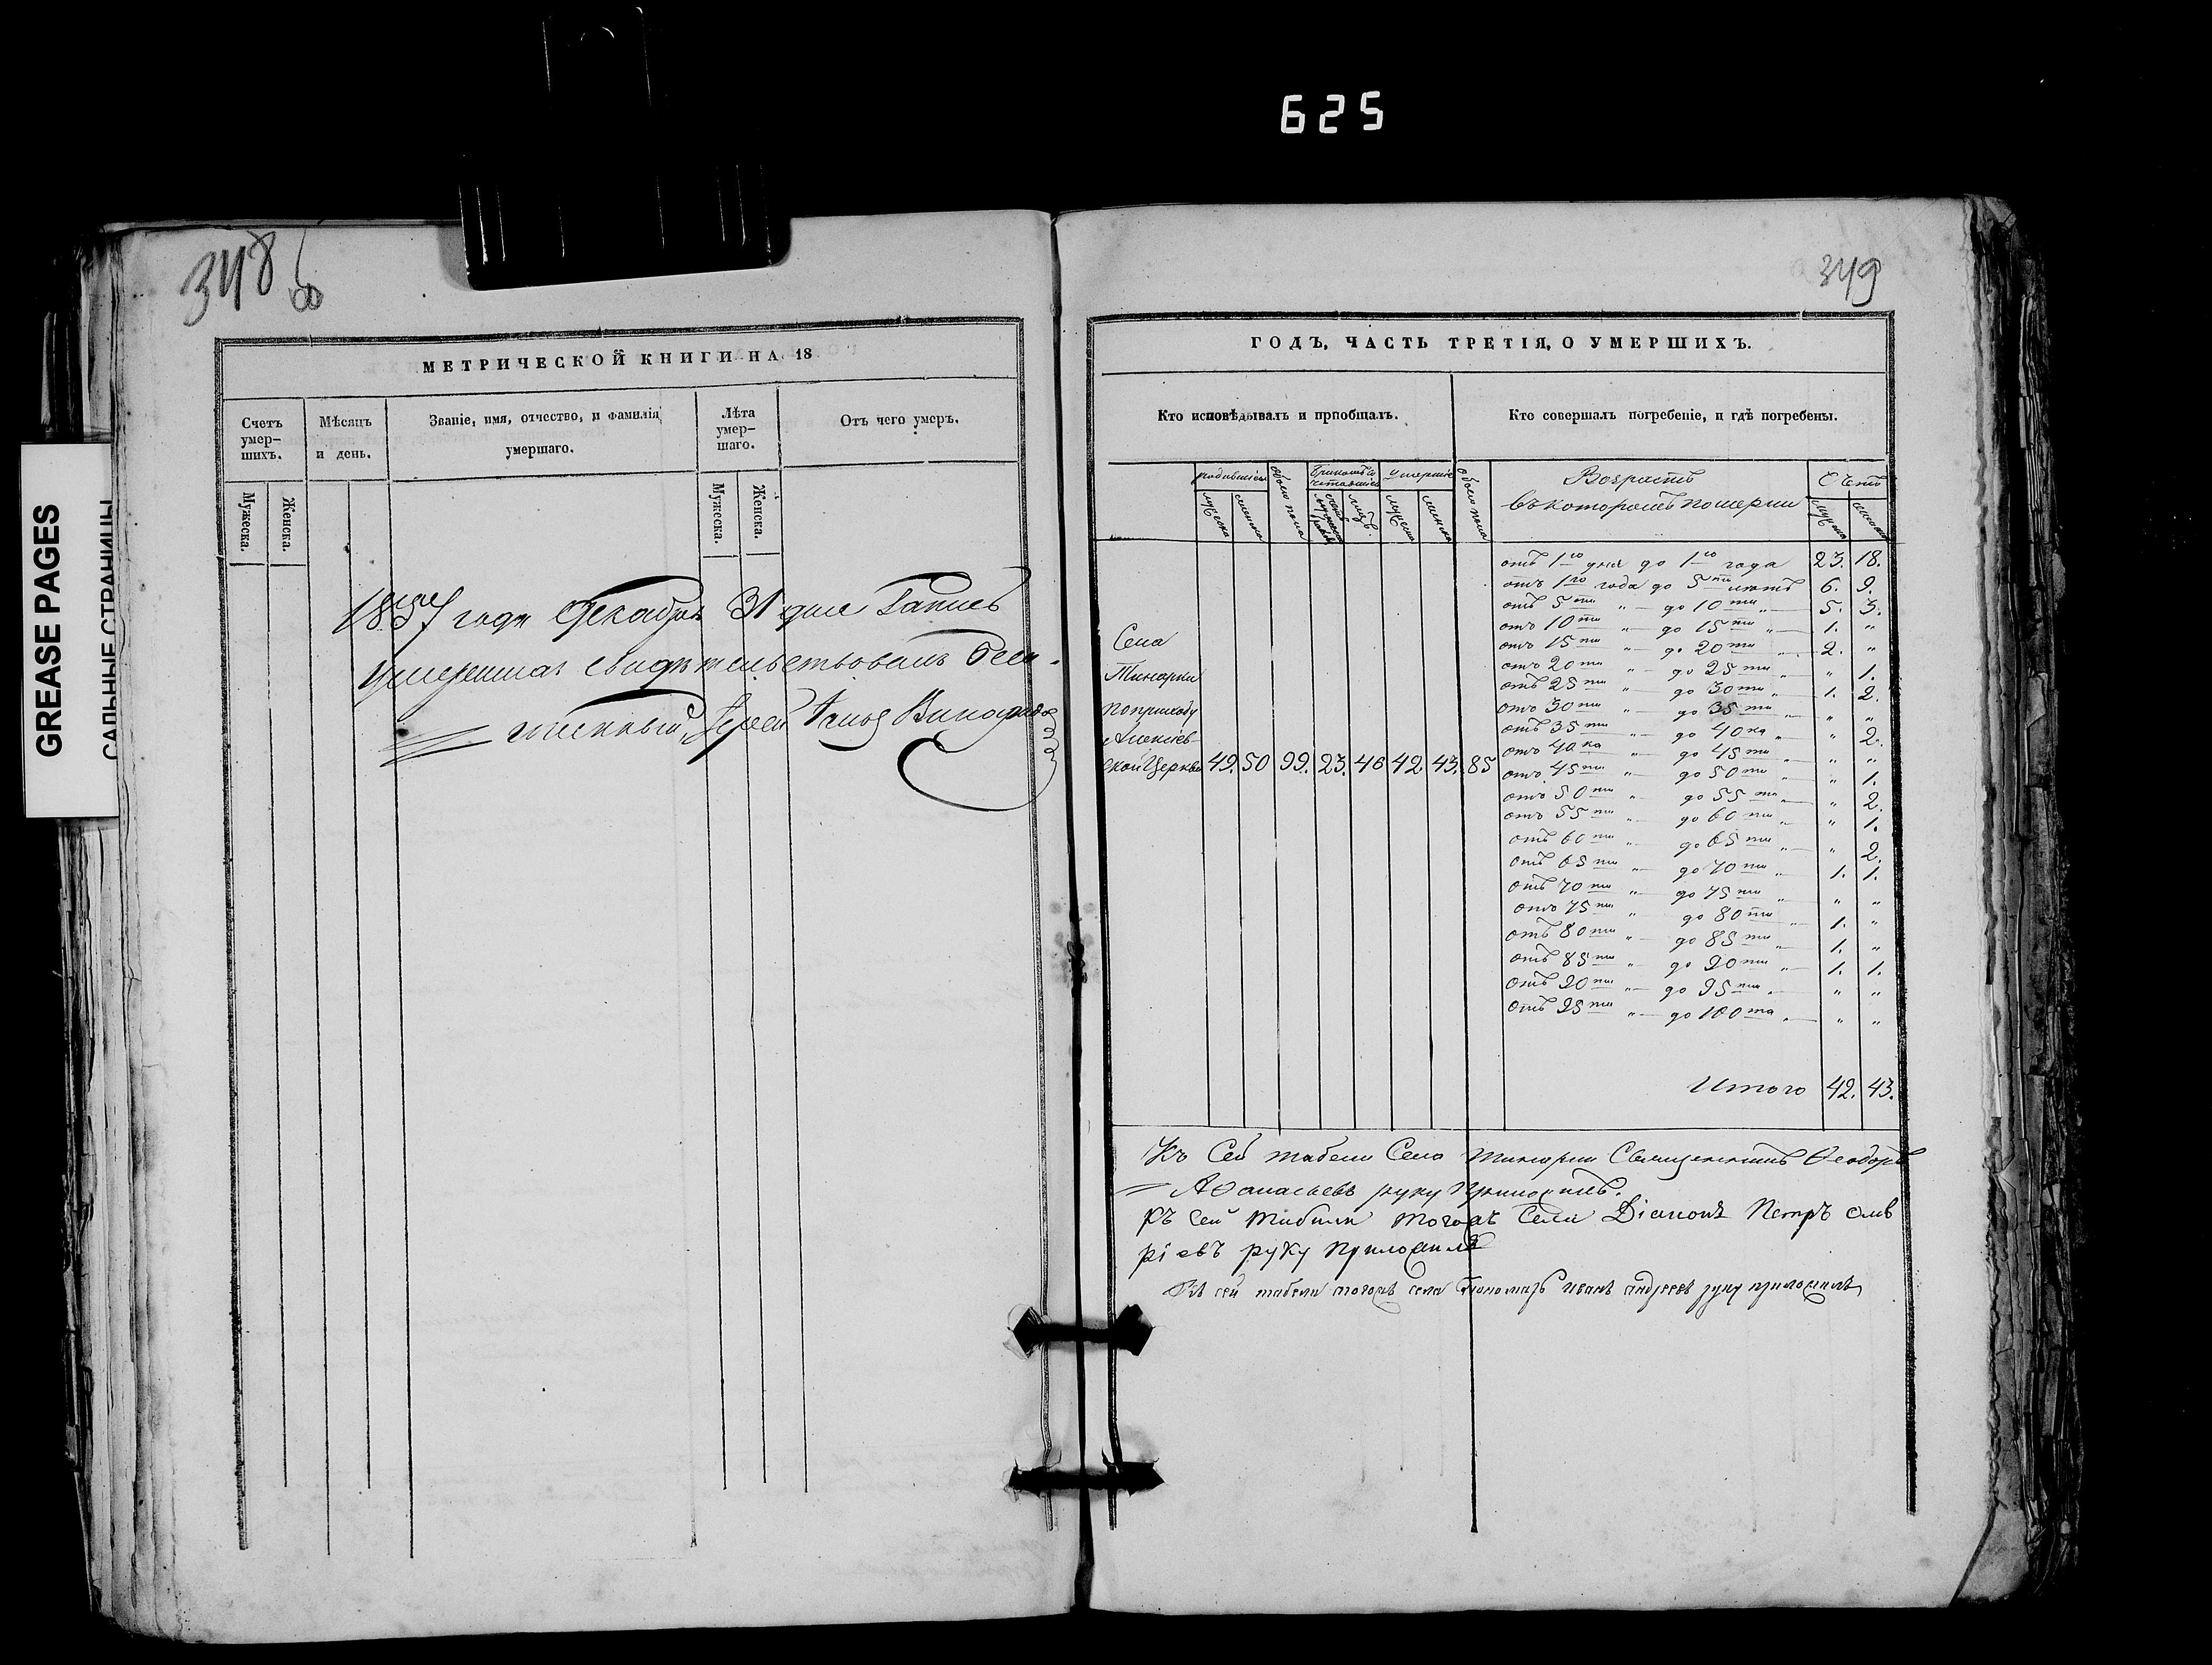 625
GREASE PAGES
САЛЬНЫЕ СТРАНИЦЫ
348
349
МЕТРИЧЕСКОЙ КНИГИ НА 18
Счетъ умер-
шихъ.
Мѣсяцъ
и день.
Званіе, имя, отчество, и фамилія
умершаго.
Лѣта
умер-
шаго.
Отъ чего умеръ.
Мужеска.
Женска.
Мужеска.
Женска.
1857 года Декабря 31 дня
свидѣтельствовалъ Бла-
гочинный, Іерей
ГОДЪ, ЧАСТЬ ТРЕТІЯ, О УМЕРШИХЪ.
Кто исповѣдывалъ и пріобщалъ.
Кто совершалъ погребеніе, и гдѣ погребены.
родившіеся
обоего пола
умершіе
обоего пола
Возрастъ
въ которомъ померли
Счетъ
мужска
женска
мужска
женска
мужска
женска
Села
Тинарки
по приходу
Алексіев-
ской Церкви 49. 50 99. 23. 46 42. 43. 85
отъ 1го дня до 1го года 23. 18.
отъ 1го года до 5ти лѣтъ 6. 9.
отъ 5ти " — до 10ти " — 5. 3.
отъ 10ти " — до 15ти " — 1. "
отъ 15ти " — до 20ти " — 2. "
отъ 20ти " — до 25ти " — " 1.
отъ 25ти " — до 30ти " — 1. 2.
отъ 30ти " — до 35ти " — " "
отъ 35ти " — до 40ка " — " 2.
отъ 40ка " — до 45ти " — " "
отъ 45ти " — до 50ти " — " 1.
отъ 50ти " — до 55ти " — " 2.
отъ 55ти " — до 60ти " — " 1.
отъ 60ти " — до 65ти " — " 2.
отъ 65ти " — до 70ти " — 1. 1.
отъ 70ти " — до 75ти " — " "
отъ 75ти " — до 80ти " — 1. "
отъ 80ти " — до 85ти " — 1. "
отъ 85ти " — до 90ти " — 1. 1.
отъ 90ти " — до 95ти " — " "
отъ 95ти " — до 100та " — " "
Итого 42. 43.
Къ Сей табели Села Тинарки Священникъ Ѳеодоръ
Аѳанасьевъ руку приложилъ.
Къ сей табели тогожъ села Діаконъ Петръ
руку приложилъ
Къ сей табели тогожъ села Пономарь иванъ андреевъ руку приложилъ